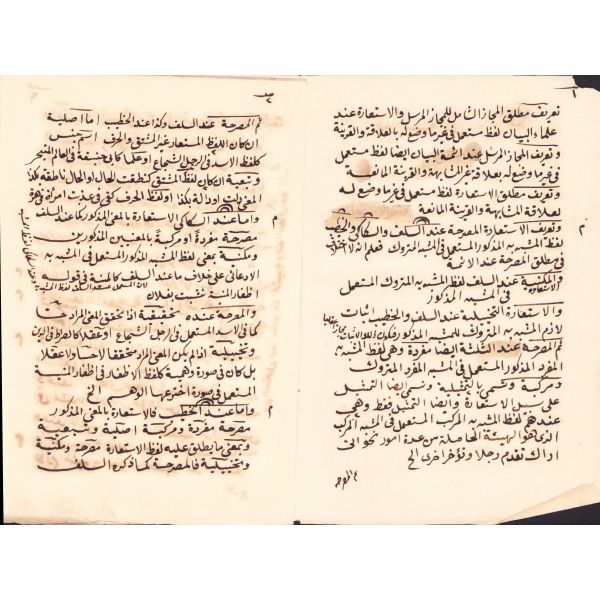 ١
تعريف مطلق المجاز الشامل للمجاز المرسل والاستعارة عند
علماء البيان لفظ مستعمل في غير ما وضع له بالعلاقة والقرينة
وتعريف المجاز المرسل عند ائمة البيان ايضا لفظ مستعمل
في غير ما وضع له بعلاقة غير المشابهة والقرينة المانعة
وتعريف مطلق الاستعارة لفظ مستعمل في غير ما وضع له
بعلاقة المشابهة والقرينة المانعة
وتعريف الاستعارة المصرحة عند السلف والسكاكي والخطيب
لفظ المشبه به المذكور المستعمل في المشبه المتروك فعلم انه لا اختلاف
في مطلق المصرحة عند الائمة
والمكنية عند السلف لفظ المشبه به المتروك المستعمل
الاستعارة
في المشبه المذكور
والاستعارة التخيلية عند السلف والخطيب اثبات
لازم المشبه به المتروك للمشبه المذكور
ثم المصرحة عند الثلثة ايضا مفردة وهي لفظ المشبه به
المفرد المذكور المستعمل في المشبه المفرد المتروك
ومركبة وتسمى بالتمثيلية وتسمى ايضا التمثيل
على سبيل الاستعارة وايضا التمثيل فقط وهي
عندهم لفظ المشبه به المركب المستعمل في المشبه المركب
الذي هو الهيئة الحاصلة من عدة امور نحو اني
اراك تقدم رجلا وتؤخر اخرى الخ
ثم المصرحة
ثم المصرحة عند السلف وكذا عند الخطيب اما اصلية
ان كان اللفظ المستعار غير المشتق والحرف اسم جنس
كلفظ الاسد في الرجل الشجاع او علما كابي حنيفة في العالم المتبحر
وتبعية ان كان لفظ المشتق كنطقت الحال او الحال ناطقة بكذا
او كلفظ الحرف كفي في عذبت امرأة في هرة
واما عند السكاكي الاستعارة بالمعنى المذكور كما عند السلف
مصرحة مفردة او مركبة بالمعنيين المذكورين
ومكنية بمعنى لفظ المشبه المذكور المستعمل في المشبه به
الادعائي على خلاف ما عند السلف كالمنية في قوله
اظفار المنية نشبت بفلان
والمصرحة عنده تحقيقية اذا تحقق المعنى المراد حسا
كما في الاسد المستعمل في الرجل الشجاع او عقلا كالصراط في الدين
وتخييلية اذا لم يكن المعنى المراد محققا لا حسا ولا عقلا
بل كان في صورة وهمية كلفظ الاظفار في اظفار المنية
المستعمل في صورة اخترعها الوهم الخ
واما عند الخطيب فالاستعارة بالمعنى المذكور
مصرحة مفردة ومركبة اصلية وتبعية
وبمعنى ما يطلق عليه لفظ الاستعارة مصرحة ومكنية
وتخييلية فالمصرحة كما ذكره السلف